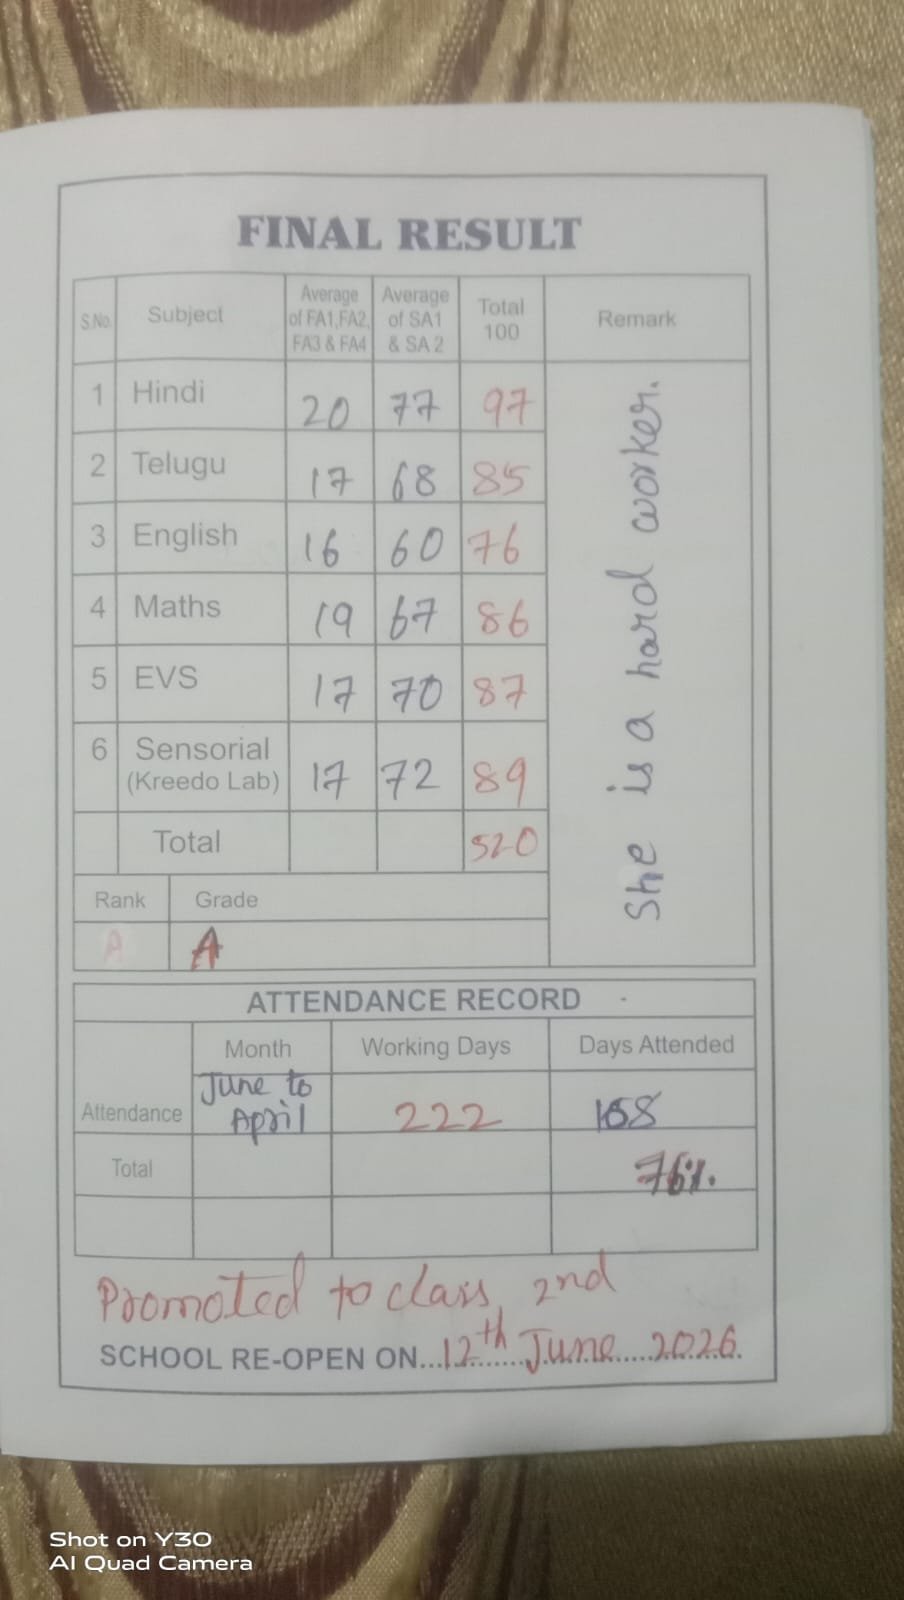 FINAL RESULT
S.No. Subject Average of FA1,FA2, FA3 & FA4 Average of SA1 & SA 2 Total 100 Remark
1 Hindi 20 77 97
2 Telugu 17 68 85
3 English 16 60 76
4 Maths 19 67 86
5 EVS 17 70 87
6 Sensorial (Kreedo Lab) 17 72 89
Total 520
She is a hard worker.
Rank Grade
A A
ATTENDANCE RECORD
Month Working Days Days Attended
Attendance June to April 222 168
Total 76%.
Promoted to class 2nd
SCHOOL RE-OPEN ON...12th June 2026.
Shot on Y30
AI Quad Camera